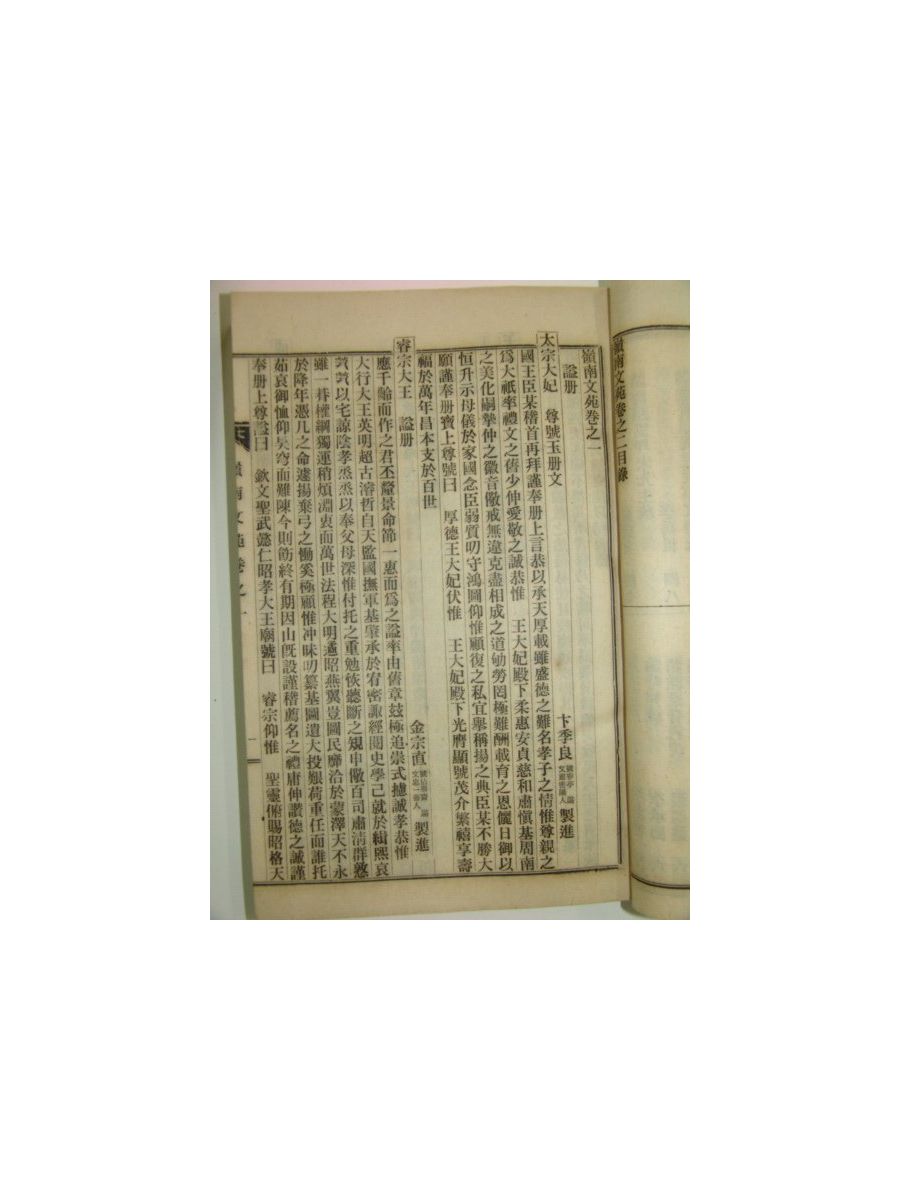 嶺南文苑卷之二目錄
嶺南文苑卷之一
諡册
太宗大妃 尊號玉册文 卞季良 製進
國王臣某稽首再拜謹奉册上言恭以承天厚載雖盛德之難名孝子之情惟尊親之
爲大祇率禮文之舊少伸愛敬之誠恭惟 王大妃殿下柔惠安貞慈和肅愼基周南
之美化嗣摯仲之徽音儆戒無違克盡相成之道劬勞罔極難酬載育之恩儷日御以
恒升示母儀於家國念臣弱質叨守鴻圖仰惟顧復之私宜擧稱揚之典臣某不勝大
願謹奉册寶上尊號曰 厚德王大妃伏惟 王大妃殿下光膺顯號茂介繁禧享壽
福於萬年昌本支於百世
睿宗大王 諡册 金宗直 製進
應千齡而作之君丕釐景命節一惠而爲之諡率由舊章玆極追崇式攄誠孝恭惟
大行大王英明超古濬哲自天監國撫軍基肇承於宥密諏經閱史學已就於緝熙哀
煢煢以宅諒陰孝烝烝以奉父母深惟付托之重勉恢聽斷之規申儆百司肅淸群慝
雖一朞權綱獨運稍煩淵衷而萬世法程大明遹昭燕翼豈圖民靡洽於蒙澤天不永
於降年憑几之命遽揚棄弓之慟奚極顧惟冲昧叨纂基圖遺大投艱荷重任而誰托
茹哀御恤仰昊穹而難陳今則飭終有期因山旣設謹稽薦名之禮庸伸讚德之誠謹
奉册上尊諡曰 欽文聖武懿仁昭孝大王廟號曰 睿宗仰惟 聖靈俯賜昭格天
嶺南文苑卷之一
一